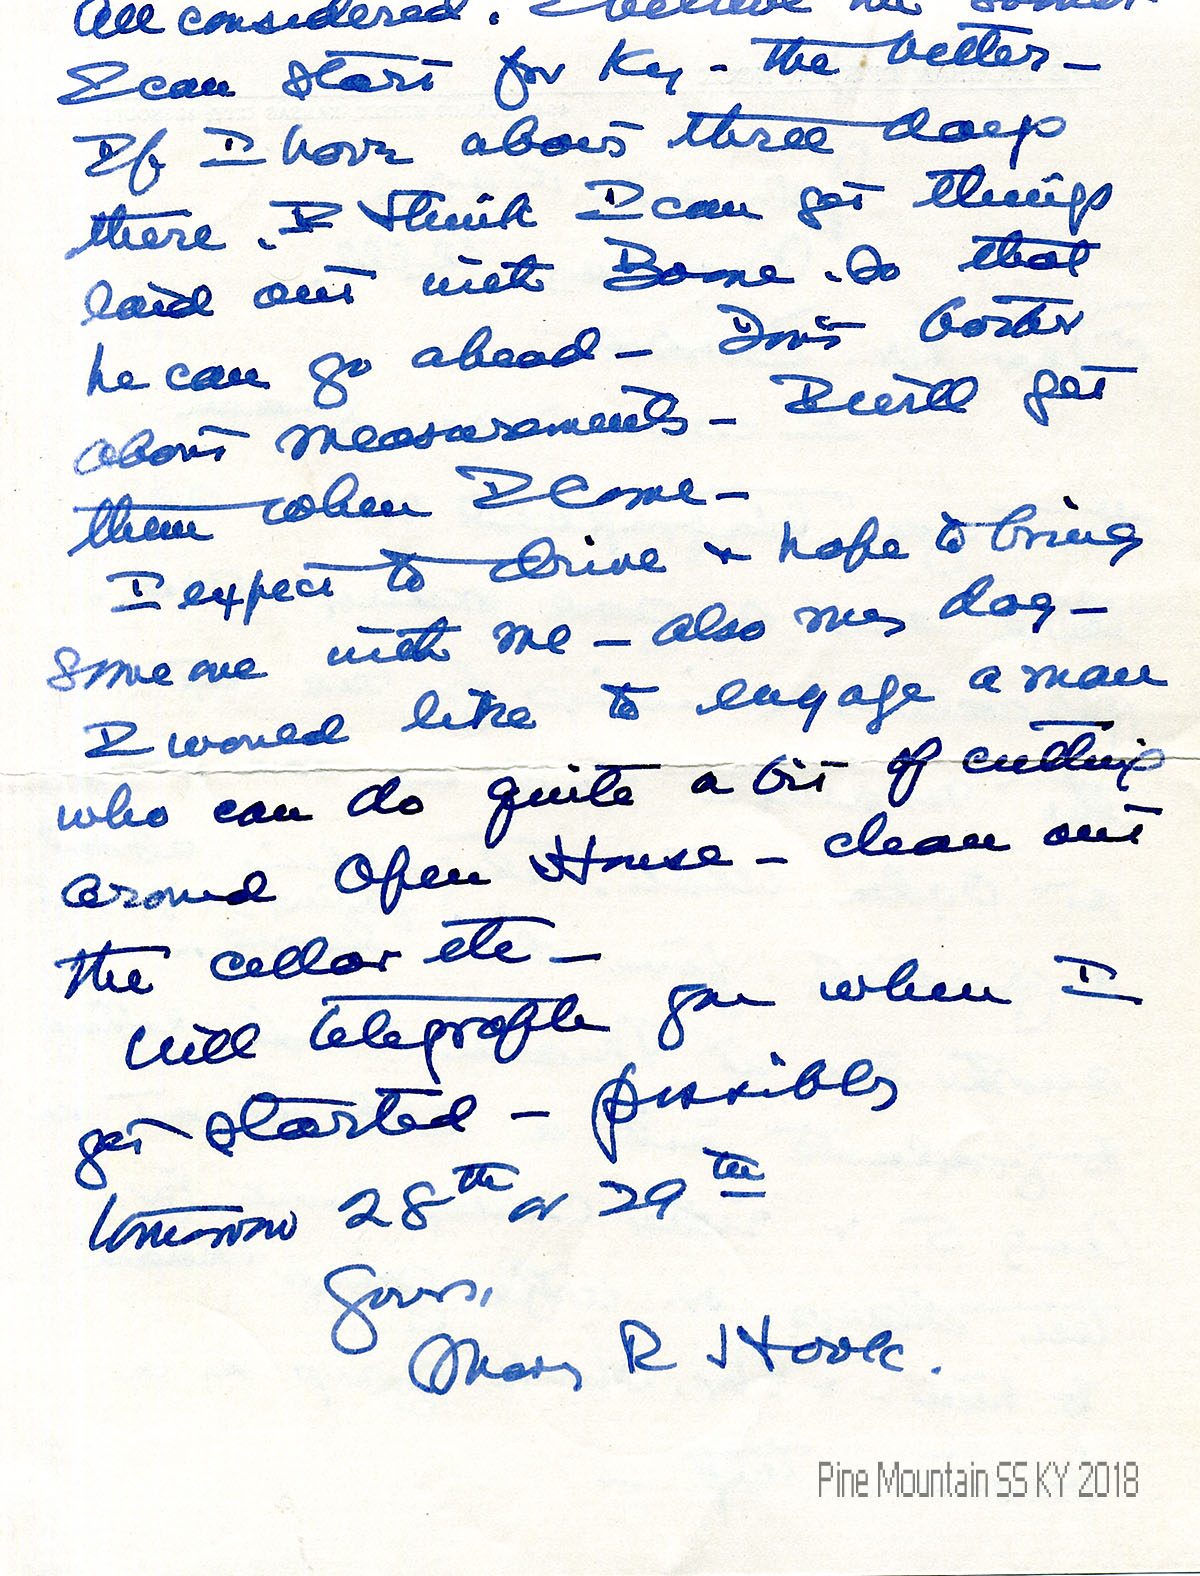 All considered. I believe the sooner
I can start for Ky - the better -
If I have about three days
there. I think I can get things
laid out with Boone. So that
he can go ahead - Don't bother
about measurements - I will get
them when I come -
I expect to drive & hope to bring
some one with me - also my dog -
I would like to engage a man
who can do quite a bit of cutting
around Open House - clean out
the cellar etc -
Will telegraph you when I
get started - possibly
tomorrow 28th or 29th
Yours,
Mary R Hook.
Pine Mountain SS KY 2018